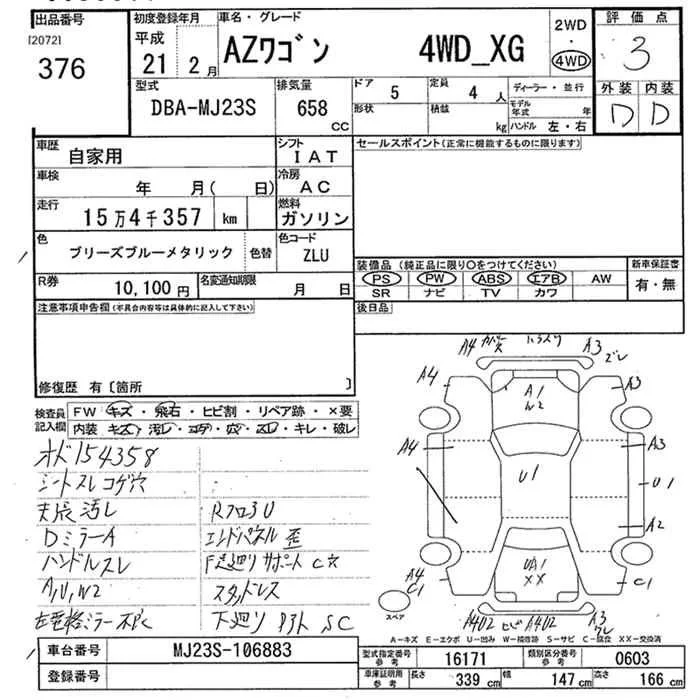 出品番号
[2072]
376
初度登録年月
平成
21年 2月
車名・グレード
AZワゴン 4WD_XG
2WD
・
4WD
評価点
3
外装 内装
D D
型式
DBA-MJ23S
排気量
658
CC
ドア
5
形状
定員
4人
積載
kg
ディーラー・並行
モデル年式 年
ハンドル 左・右
車歴
自家用
シフト
IAT
車検
年 月( 日)
冷房
AC
走行
15万4千357 km
燃料
ガソリン
色
ブリーズブルーメタリック
色替
色コード
ZLU
R券
10,100円
名変通知期限
月 日
セールスポイント(正常に機能するものに限ります)
装備品 (純正品に限り○をつけてください)
PS PW ABS エアB AW
SR ナビ TV カワ
新車保証書
有・無
後日品
注意事項申告欄(不具合内容等は具体的に記入して下さい)
修復歴 有〔箇所 〕
検査員
記入欄
FW キズ・飛石・ヒビ割・リペア跡・×要
内装 キズ・汚レ・コゲ・穴・スレ・キレ・破レ
オド154358
シートスレコゲ穴
天張汚レ
DミラーA
ハンドルスレ
A,U,W2
左電格ミラー不良
Rフロ3U
エンドパネル歪
F足廻りサポートC穴
スタッドレス
下廻り SC
A4
A3
ズレ
A4
A3
A1
W2
A4
A3
U1
U1
A2
UA1
XX
A4
C1
C1
スペア
A4U2 ヒビ A4U2
A3
A-キズ E-エクボ U-凹み W-補修跡 S-サビ C-腐食 XX-交換済
車台番号
MJ23S-106883
登録番号
型式指定番号
参考
16171
類別区分番号
参考
0603
車庫証明用
参考
長さ
339cm
幅
147cm
高さ
166cm